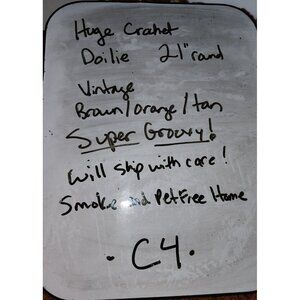 Huge Crochet
Doilie 21" round
Vintage
Brown/orange/tan
Super Groovy!
Will ship with care!
Smoke and Pet Free Home
. C4.